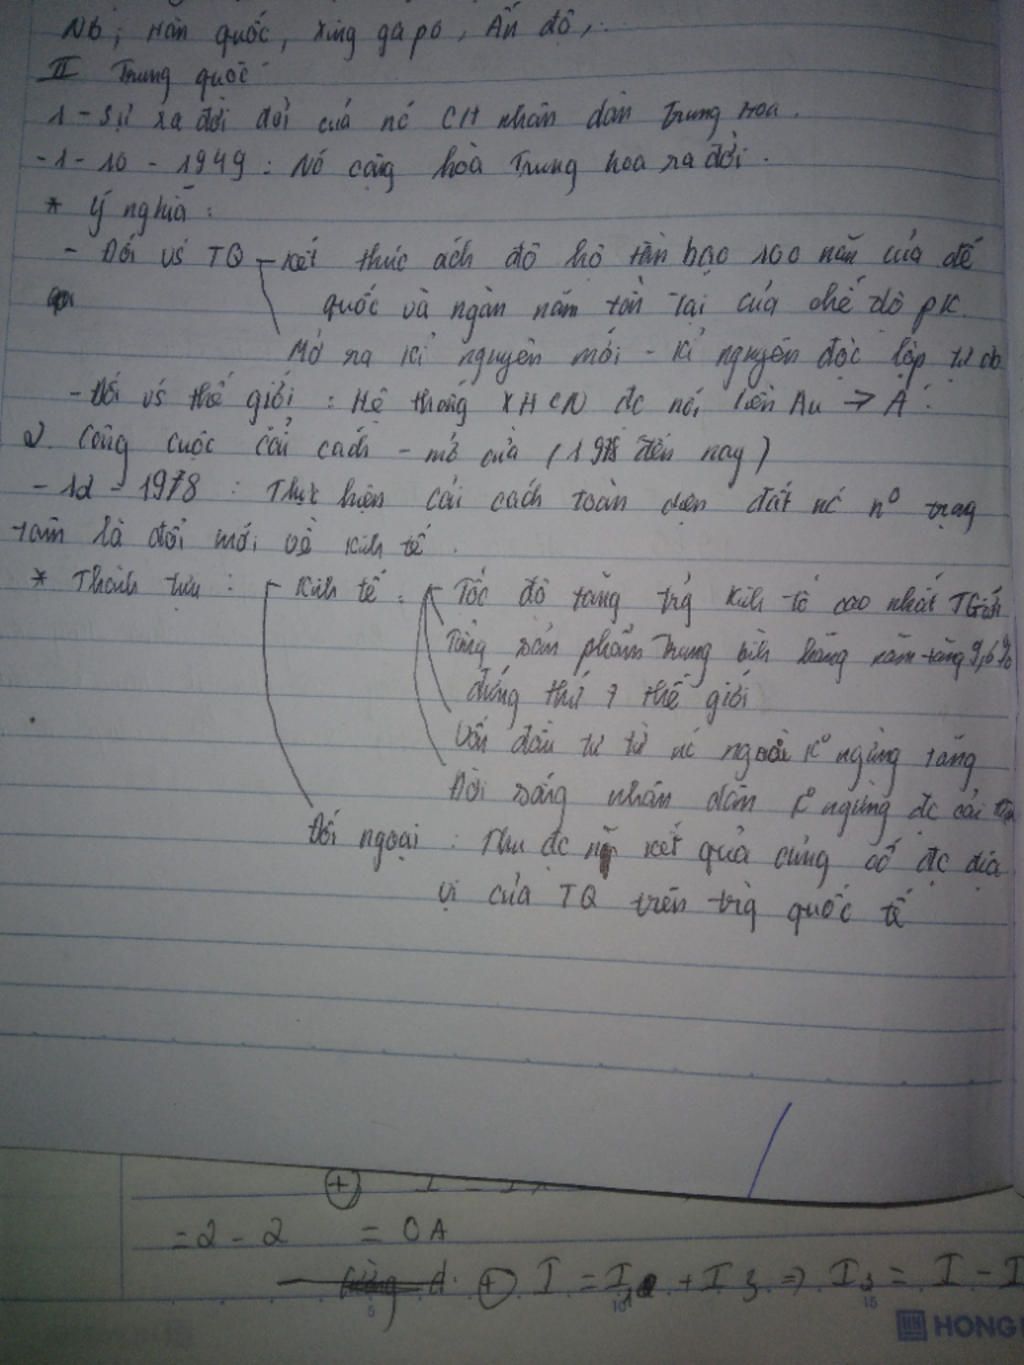 NB; Hàn quốc, Xing ga po, Ấn độ,..
II Trung quốc
1 - Sự ra đời đời của nc CH nhân dân Trung Hoa.
- 1 - 10 - 1949 : Nc cộng hòa Trung hoa ra đời.
* Ý nghĩa :
- Đối vs TQ - Kết thúc ách đô hộ tàn bạo 100 năm của đế
quốc và ngàn năm tồn tại của chế độ pk.
Mở ra kỉ nguyên mới - kỉ nguyên độc lập tự do
- Đối vs thế giới : Hệ thống XHCN đc nối liền Âu → Á.
2. Công cuộc cải cách - mở cửa (1978 đến nay)
- 12 - 1978 : Thực hiện cải cách toàn diện đất nc trọng
tâm là đổi mới về kinh tế.
* Thành tựu : - Kinh tế : - Tốc độ tăng trg kinh tế cao nhất TGiới
Tổng sản phẩm trung bình hàng năm tăng 9,6%
đứng thứ 7 thế giới
Vốn đầu tư từ nc ngoài k° ngừng tăng
Đời sống nhân dân k° ngừng đc cải
Đối ngoại : Thu đc kết quả củng cố đc địa
vị của TQ trên trg quốc tế
+ I =
= 2 - 2 = 0A
+ I = + I3 ⇒ I3 = I - I
5 10 15
HONG